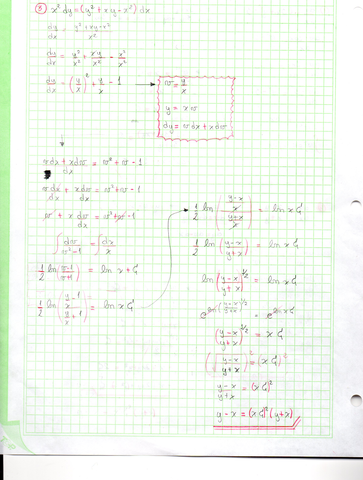 ⑧ x² dy = (y² + xy - x²) dx
dy/dx = (y² + xy - x²)/x²
dy/dx = y²/x² + xy/x² - x²/x²
dy/dx = (y/x)² + y/x - 1
v = y/x
y = xv
dy = v dx + x dv
(v dx + x dv)/dx = v² + v - 1
v dx/dx + x dv/dx = v² + v - 1
v + x dv/dx = v² + v - 1
∫ dv/(v² - 1) = ∫ dx/x
1/2 ln((v-1)/(v+1)) = ln x + C
1/2 ln((y/x - 1)/(y/x + 1)) = ln x C
1/2 ln(((y-x)/x)/((y+x)/x)) = ln x C
1/2 ln((y-x)/(y+x)) = ln x C
ln((y-x)/(y+x))^(1/2) = ln x C
e^(ln((y-x)/(y+x))^(1/2)) = e^(ln x C)
((y-x)/(y+x))^(1/2) = x C
(√((y-x)/(y+x)))² = (x C)²
(y-x)/(y+x) = (x C)²
y - x = (x C)² (y + x)